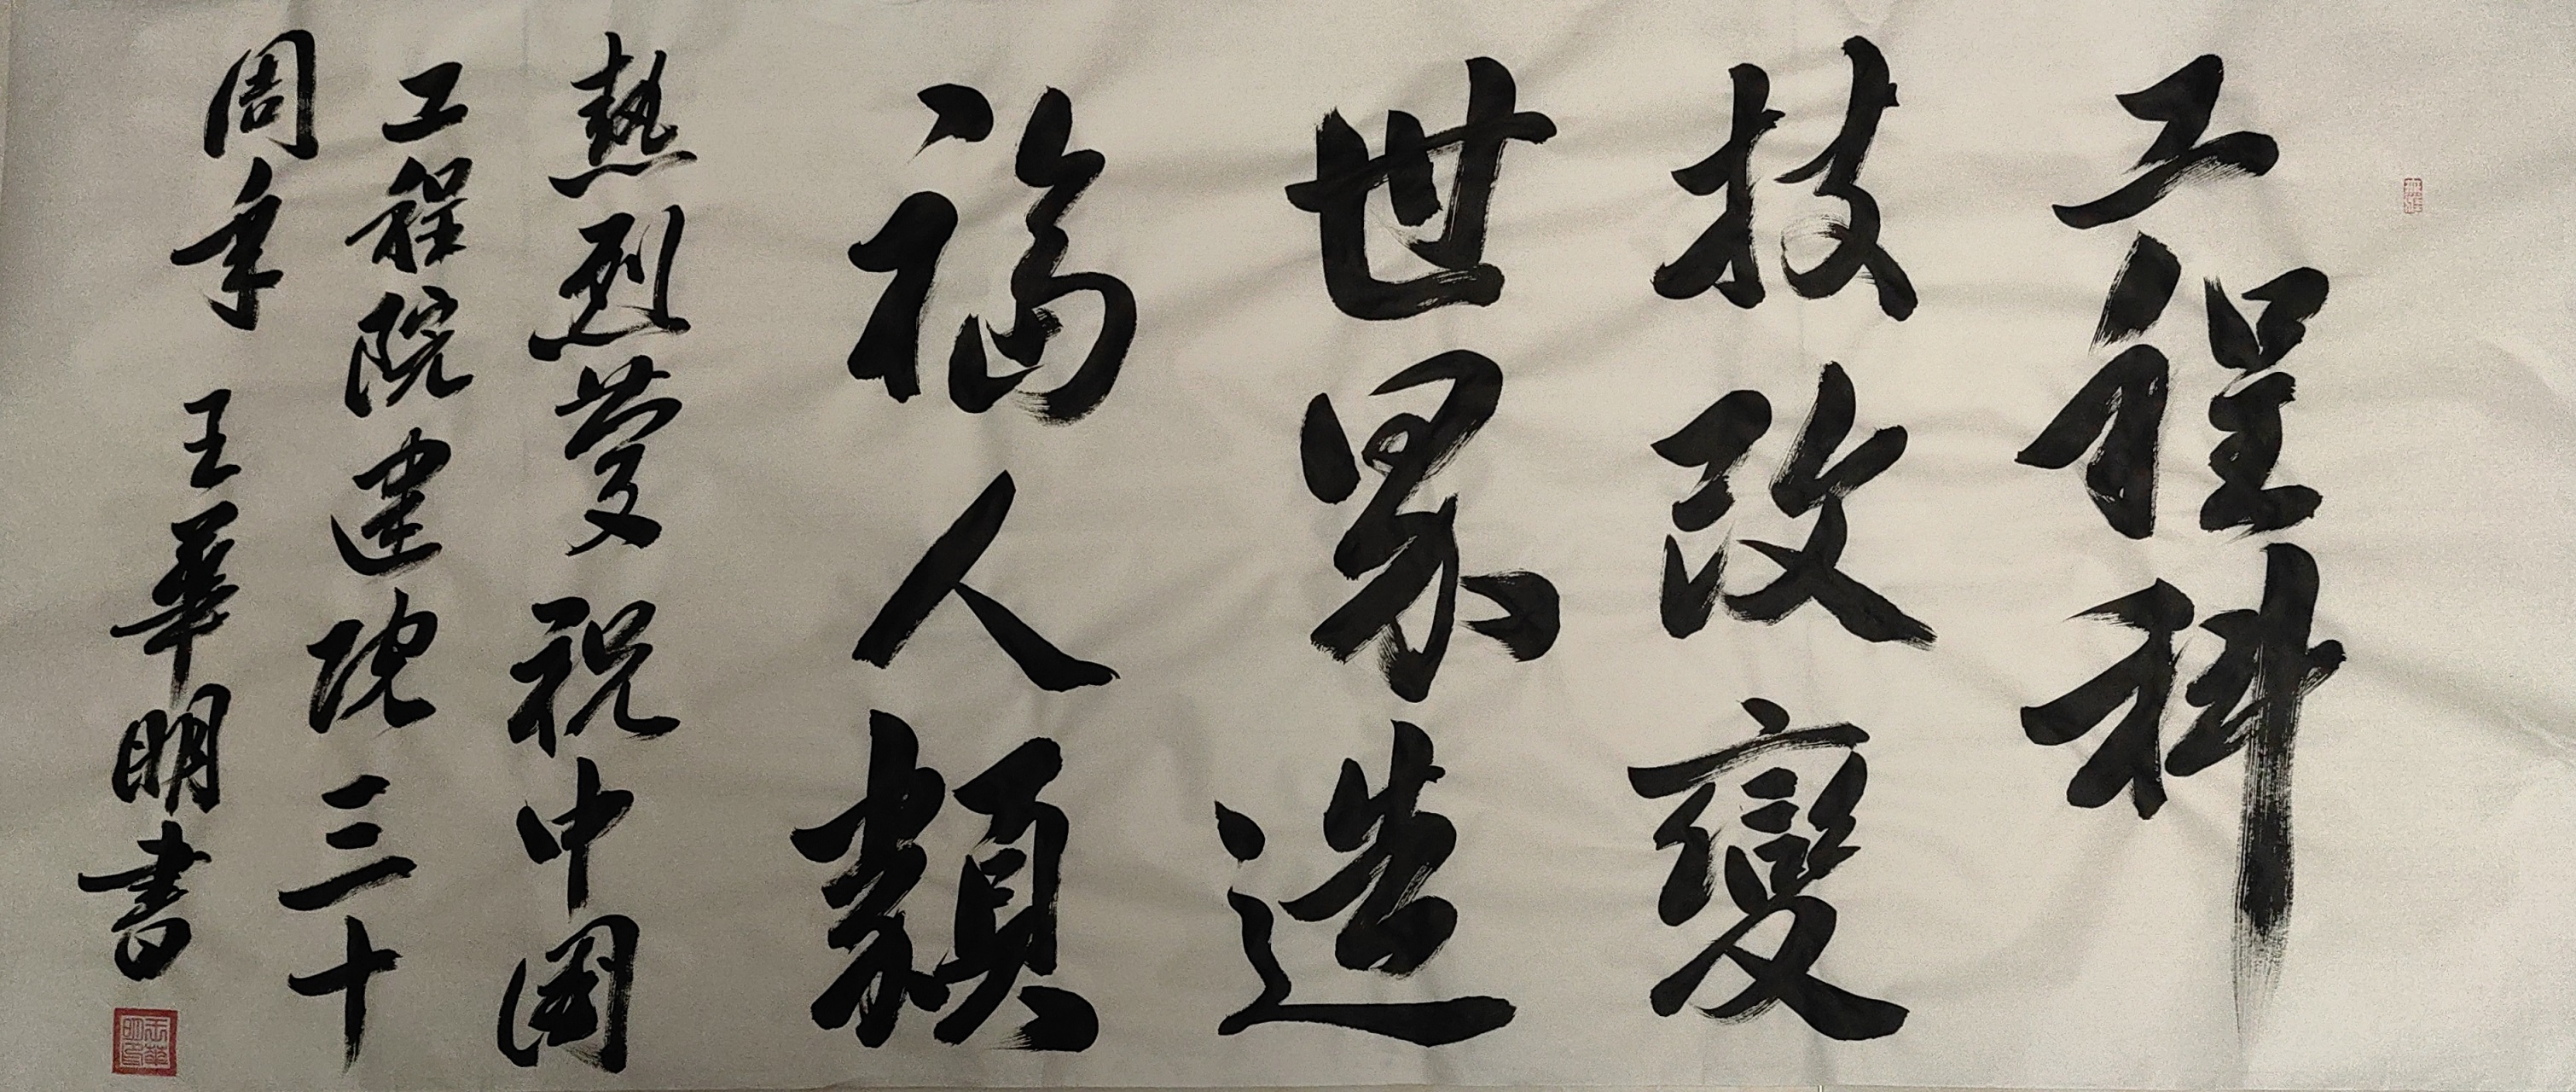 工程科
技改變
世界造
福人類
熱烈慶祝中国
工程院建院三十
周年 王華明書